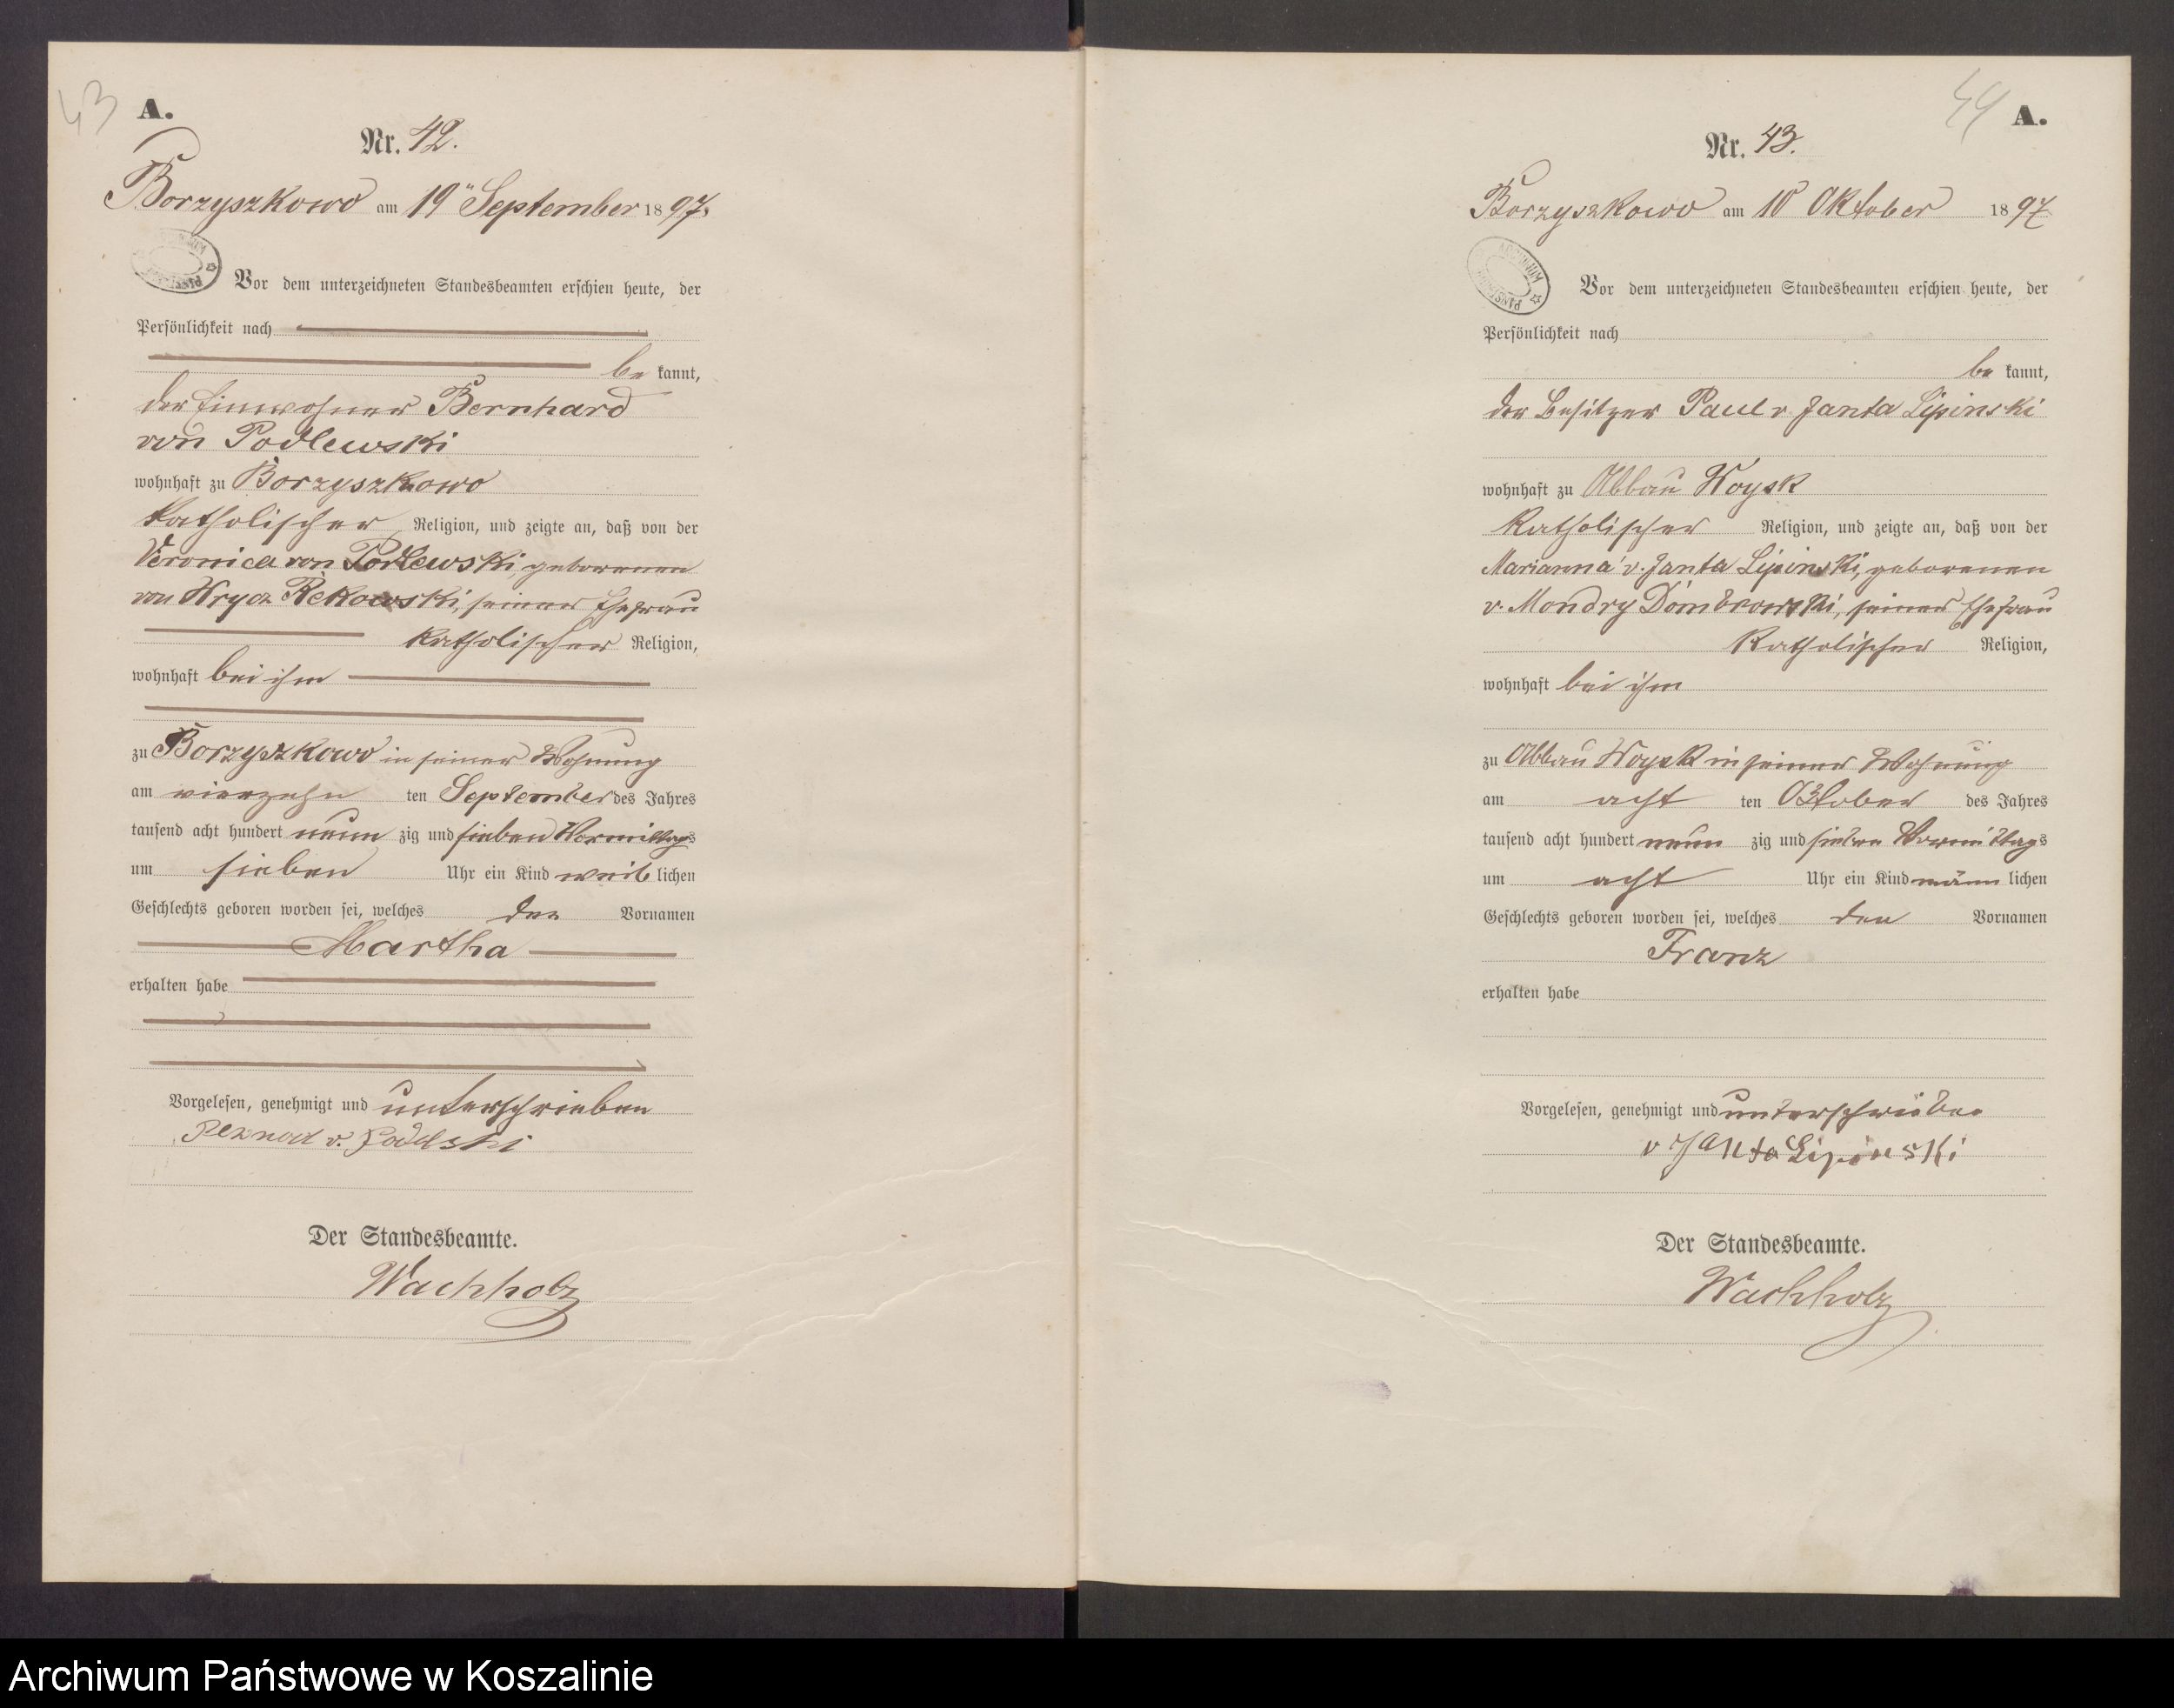 43
A.
Nr. 42.
Borzyszkowo am 19ⁿ September 1897.
Vor dem unterzeichneten Standesbeamten erschien heute, der
Persönlichkeit nach
be kannt,
der Einwohner Bernhard
von Podlewski
wohnhaft zu Borzyszkowo
katholischer Religion, und zeigte an, daß von der
Veronica von Podlewski, geborenen
von Wrycz Rekowski, seiner Ehefrau
katholischer Religion,
wohnhaft bei ihm
zu Borzyszkowo in seiner Wohnung
am vierzehn ten September des Jahres
tausend acht hundert neun zig und sieben Vormittags
um sieben Uhr ein Kind weib lichen
Geschlechts geboren worden sei, welches den Vornamen
Martha
erhalten habe
Vorgelesen, genehmigt und unterschrieben
v.
Der Standesbeamte.
Wachholz
44
A.
Nr. 43.
Borzyszkowo am 10 Oktober 1897
ARCHIWUM PAŃSTWOWE
Vor dem unterzeichneten Standesbeamten erschien heute, der
Persönlichkeit nach
be kannt,
der Besitzer Paul v Janta Lipinski
wohnhaft zu Abbau Woysk
katholischer Religion, und zeigte an, daß von der
Marianna v. Janta Lipinski, geborenen
v. Mondry Dombrowski, seiner Ehefrau
katholischer Religion,
wohnhaft bei ihm
zu Abbau Woysk in seiner Wohnung
am acht ten Oktober des Jahres
tausend acht hundert neun zig und sieben Vormittags
um acht Uhr ein Kind männ lichen
Geschlechts geboren worden sei, welches den Vornamen
Franz
erhalten habe
Vorgelesen, genehmigt und unterschrieben
v Janta Lipinski
Der Standesbeamte.
Wachholz
Archiwum Państwowe w Koszalinie